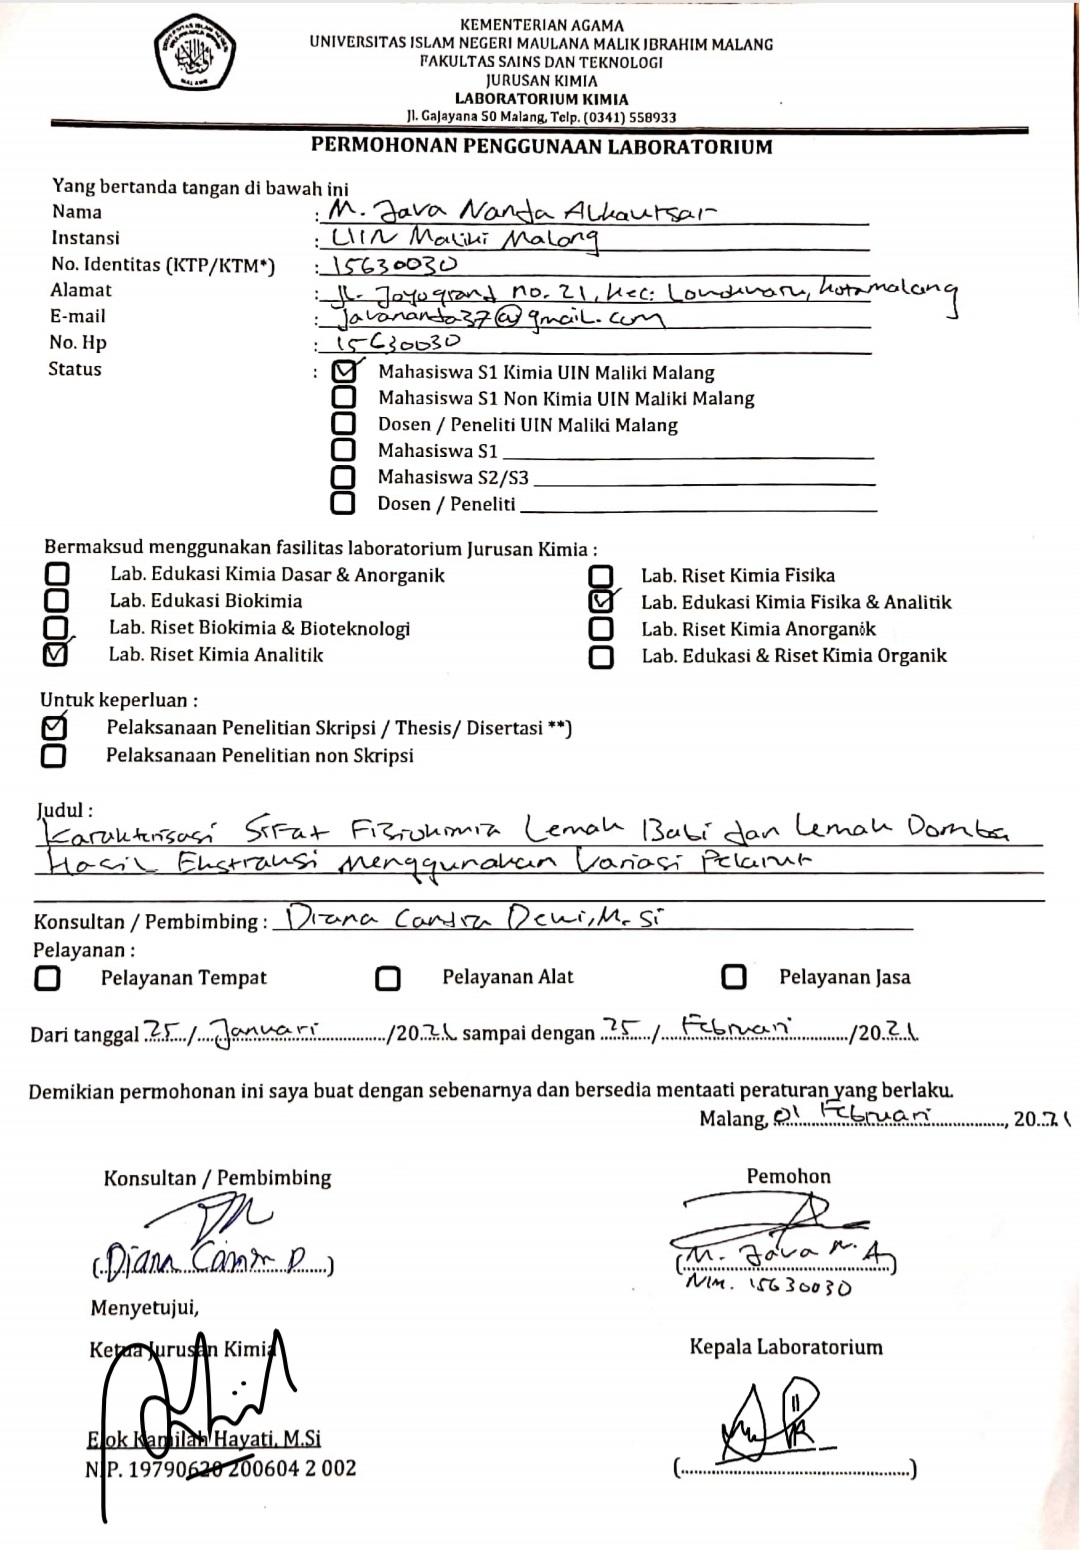 KEMENTERIAN AGAMA
UNIVERSITAS ISLAM NEGERI MAULANA MALIK IBRAHIM MALANG
FAKULTAS SAINS DAN TEKNOLOGI
JURUSAN KIMIA
LABORATORIUM KIMIA
Jl. Gajayana 50 Malang, Telp. (0341) 558933
PERMOHONAN PENGGUNAAN LABORATORIUM
Yang bertanda tangan di bawah ini
Nama : M. Java Nanda Alkautsar
Instansi : UIN Maliki Malang
No. Identitas (KTP/KTM*) : 15630030
Alamat : Jl. Joyogrand no. 21, Kec: Lowokwaru, kota malang
E-mail : javananda37@gmail.com
No. Hp : 15630030
Status : Mahasiswa S1 Kimia UIN Maliki Malang
Mahasiswa S1 Non Kimia UIN Maliki Malang
Dosen / Peneliti UIN Maliki Malang
Mahasiswa S1
Mahasiswa S2/S3
Dosen / Peneliti
Bermaksud menggunakan fasilitas laboratorium Jurusan Kimia :
Lab. Edukasi Kimia Dasar & Anorganik Lab. Riset Kimia Fisika
Lab. Edukasi Biokimia Lab. Edukasi Kimia Fisika & Analitik
Lab. Riset Biokimia & Bioteknologi Lab. Riset Kimia Anorganik
Lab. Riset Kimia Analitik Lab. Edukasi & Riset Kimia Organik
Untuk keperluan :
Pelaksanaan Penelitian Skripsi / Thesis/ Disertasi **)
Pelaksanaan Penelitian non Skripsi
Judul :
Karakterisasi Sifat Fisikokimia Lemak Babi dan Lemak Domba
Hasil Ekstraksi Menggunakan Variasi Pelarut
Konsultan / Pembimbing : Diana Candra Dewi, M.Si
Pelayanan :
Pelayanan Tempat Pelayanan Alat Pelayanan Jasa
Dari tanggal 25 / Januari /2021 sampai dengan 25 / Februari /2021
Demikian permohonan ini saya buat dengan sebenarnya dan bersedia mentaati peraturan yang berlaku.
Malang, 01 Februari, 2021
Konsultan / Pembimbing Pemohon
(Diana Candra D) (M. Java N. A)
NIM. 15630030
Menyetujui,
Ketua Jurusan Kimia Kepala Laboratorium
Elok Kamilah Hayati, M.Si
NIP. 19790620 200604 2 002